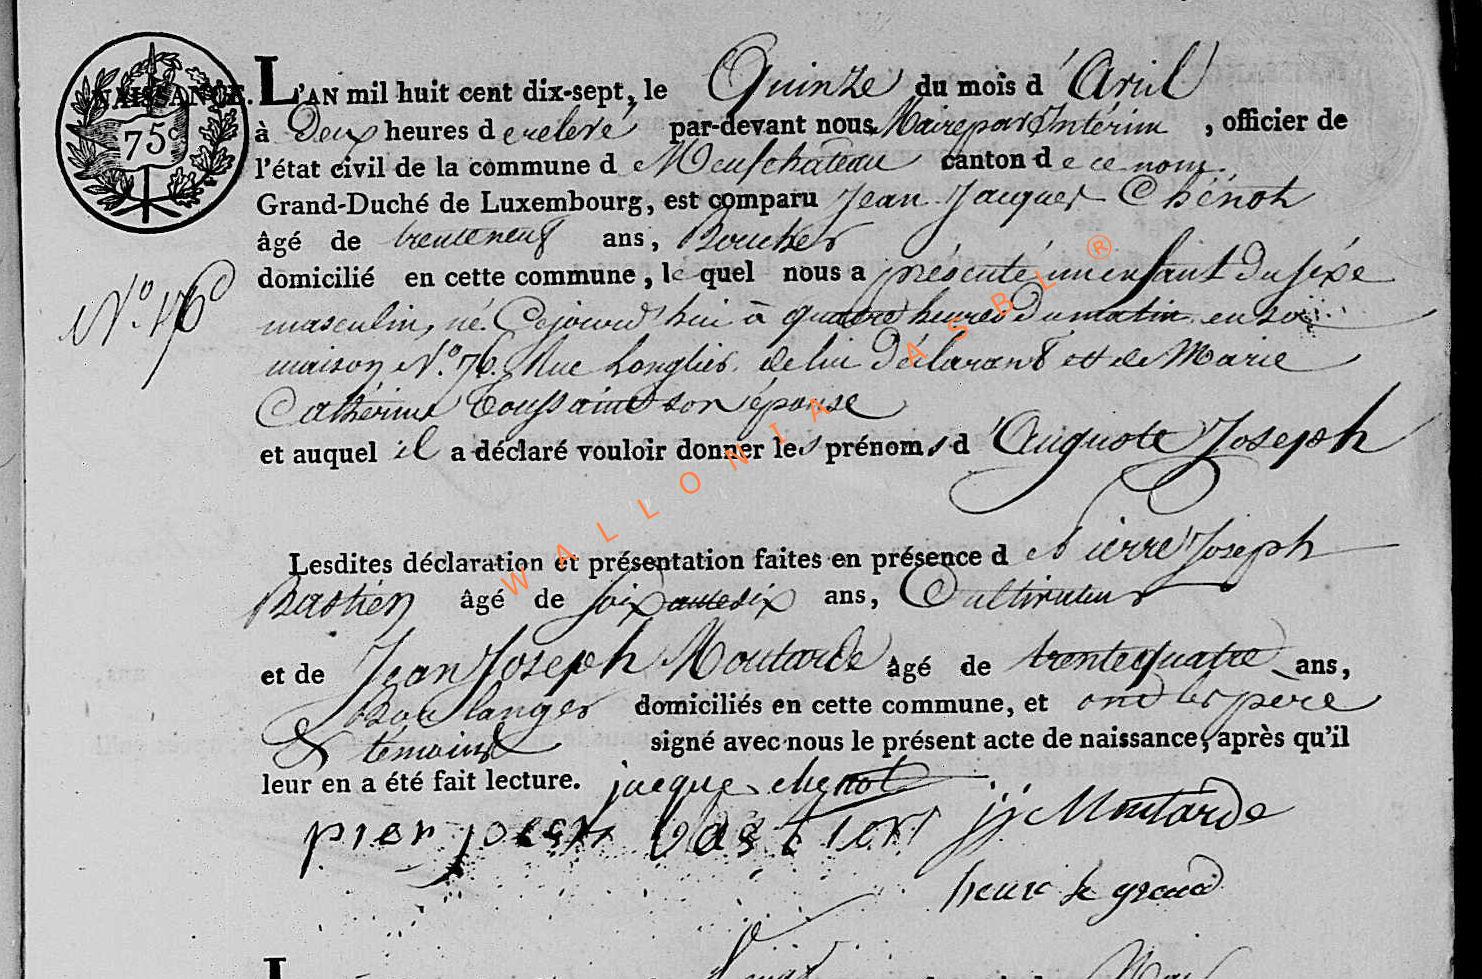 NAISSANCE.
75c
L'AN mil huit cent dix-sept, le Quinze du mois d'Avril
à Deux heures de relevé par-devant nous Maire par Intérim, officier de
l'état civil de la commune d Neufchâteau canton de ce nom
Grand-Duché de Luxembourg, est comparu Jean Jacques Chénot
âgé de trente neuf ans, Boucher
domicilié en cette commune, lequel nous a présenté un enfant du sexe
N.° 46
masculin, né Cejourd'hui à quatre heures du matin, en sa
maison N.° 76. Rue Longlier. de lui Déclarant et de Marie
Cathérine Toussaint son épouse
et auquel il a déclaré vouloir donner les prénoms d'Auguste Joseph
Lesdites déclaration et présentation faites en présence d Pierre Joseph
Bastien âgé de soixante six ans, Cultivateur
et de Jean Joseph Moutarde âgé de trente quatre ans,
Boulanger domiciliés en cette commune, et ont les père
& témoins signé avec nous le présent acte de naissance, après qu'il
leur en a été fait lecture. jacque chenot
pier josept bastien jj Moutarde
WALLONIA ASBL ®